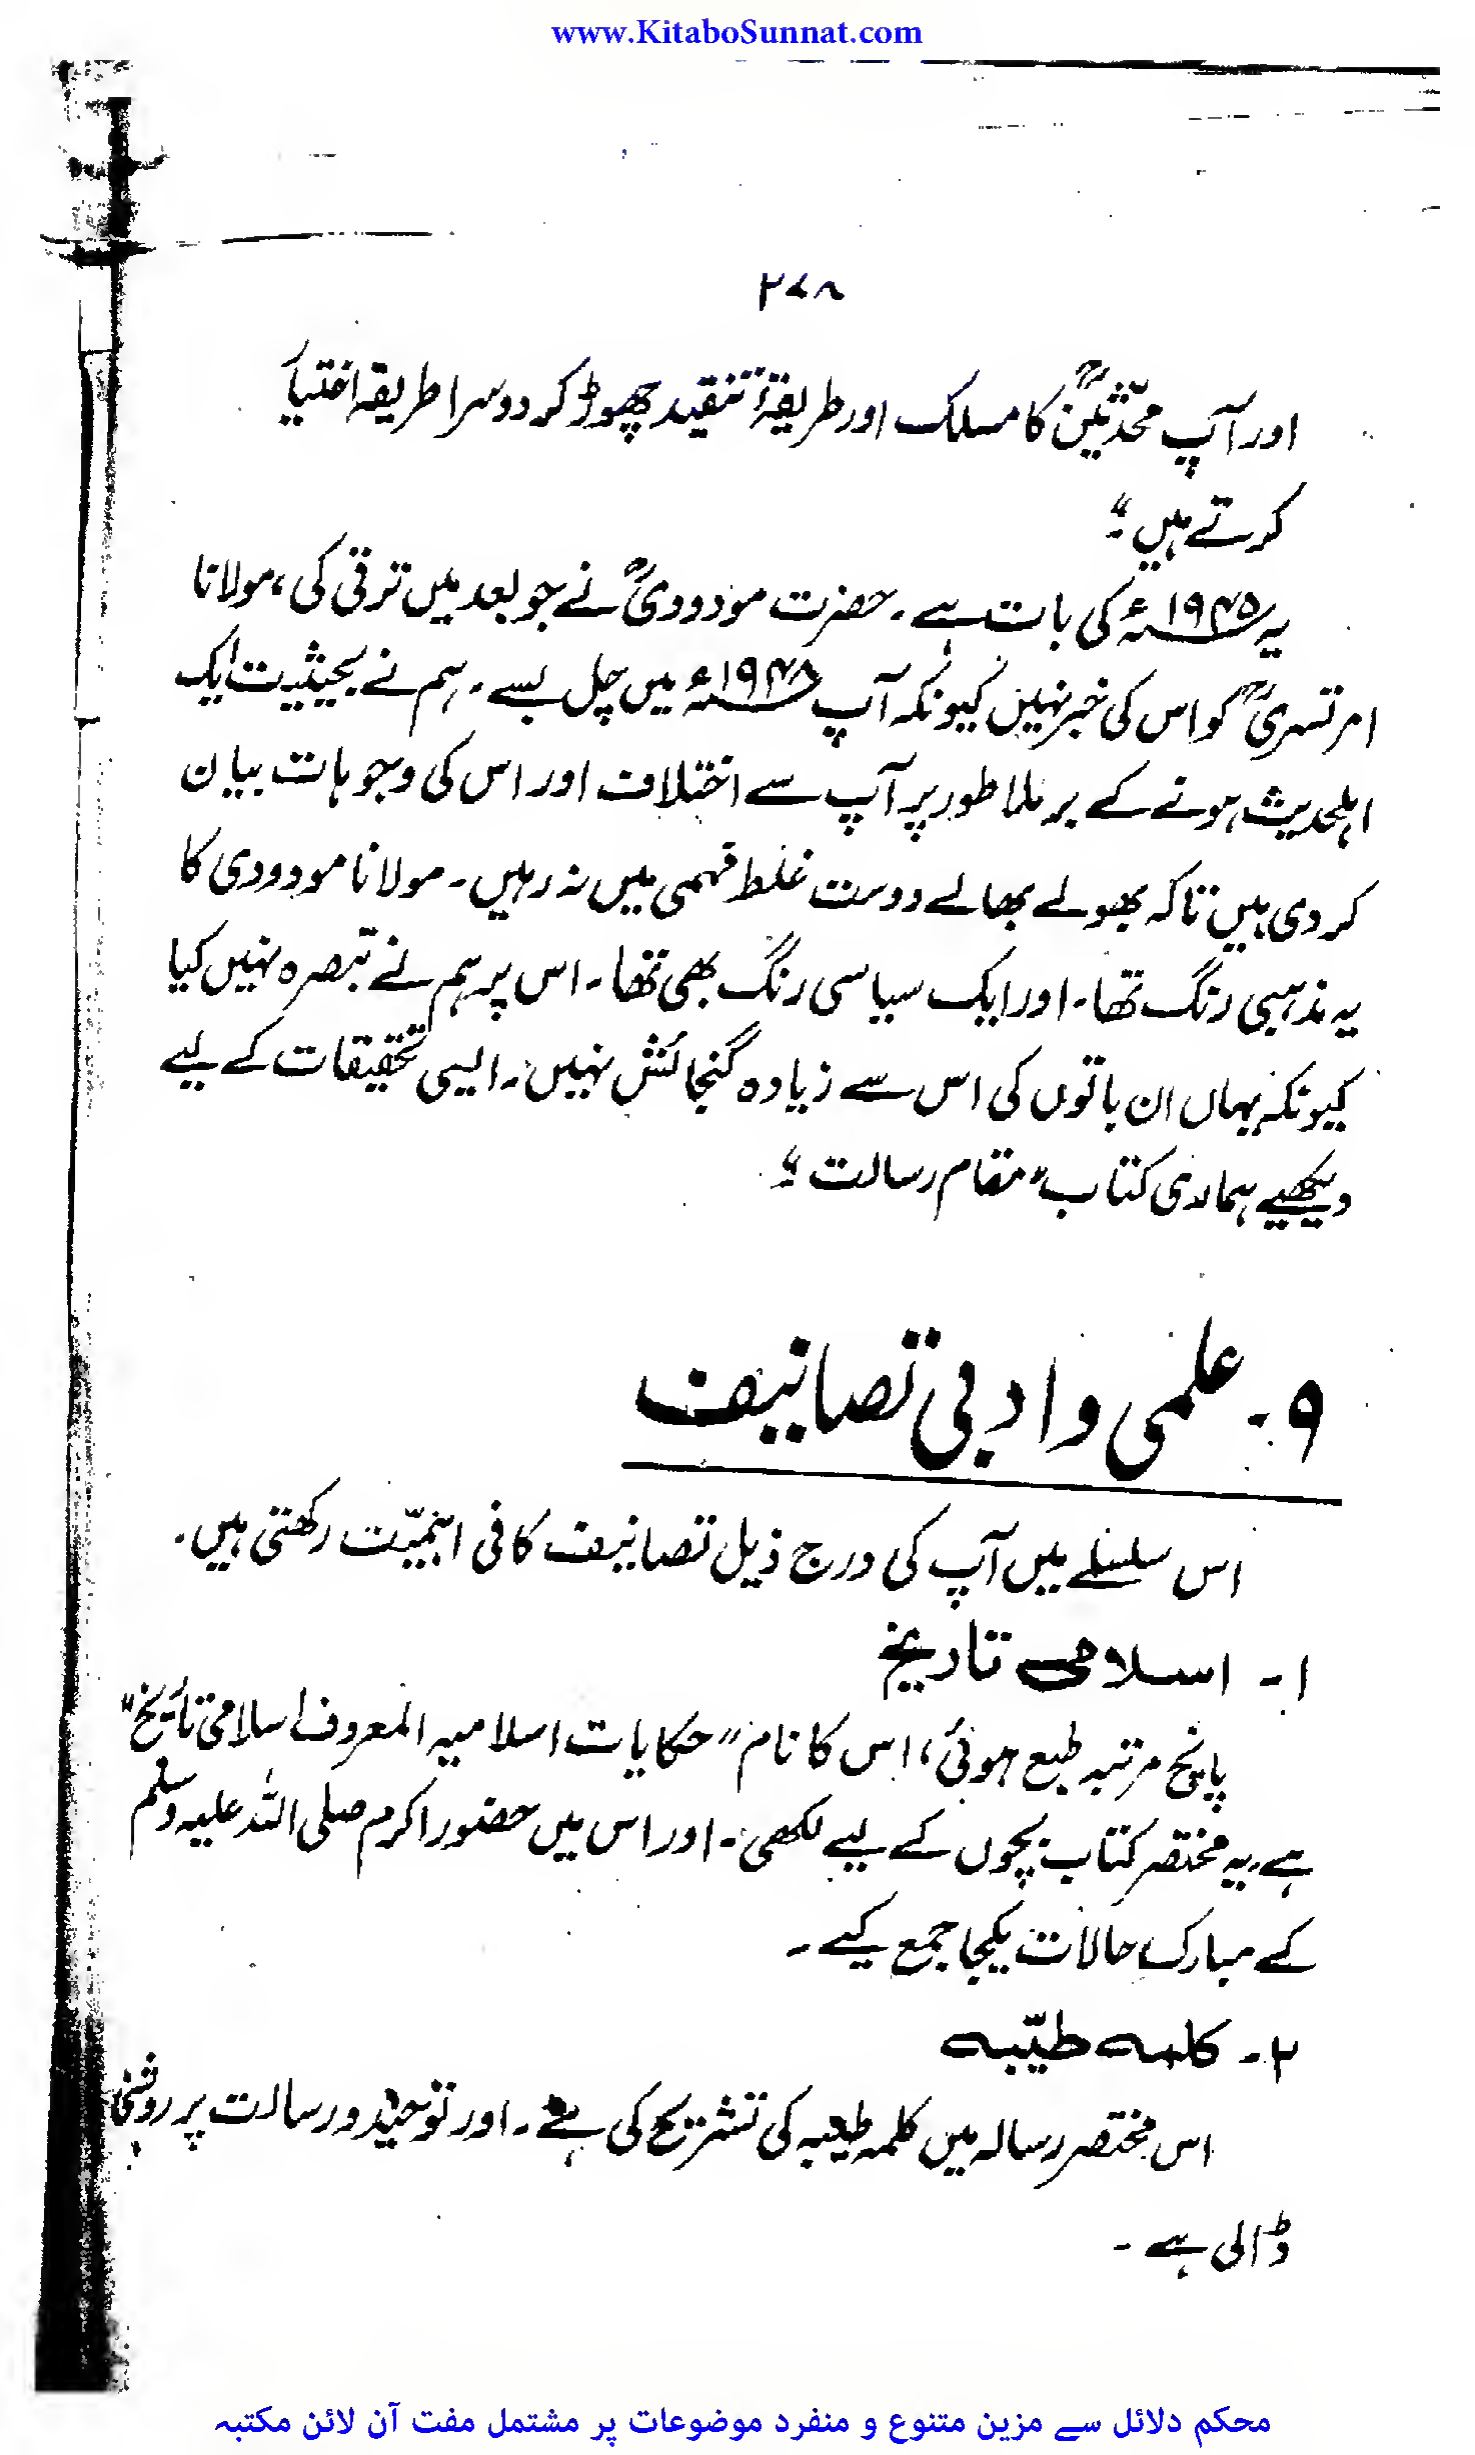 www.KitaboSunnat.com
۲۷۸
اور آپ محدّثینؒ کا مسلک اور طریقۂ تنقید چھوڑ کر دوسرا طریقہ اختیار
کرتے ہیں“
یہ ۱۹۴۵ء کی بات ہے۔ حضرت مودودیؒ نے جو بعد میں ترقی کی، مولانا
امرتسریؒ کو اس کی خبر نہیں کیونکہ آپ ۱۹۴۸ء میں چل بسے۔ ہم نے بحیثیت ایک
اہلحدیث ہونے کے برملا طور پر آپ سے اختلاف اور اس کی وجوہات بیان
کر دی ہیں تاکہ بھولے بھالے دوست غلط فہمی میں نہ رہیں۔ مولانا مودودی کا
یہ مذہبی رنگ تھا۔ اور ایک سیاسی رنگ بھی تھا۔ اس پر ہم نے تبصرہ نہیں کیا
کیونکہ یہاں ان باتوں کی اس سے زیادہ گنجائش نہیں۔ ایسی تحقیقات کے لیے
دیکھیے ہماری کتاب ”مقام رسالت“
۹۔ علمی و ادبی تصانیف
اس سلسلے میں آپ کی درج ذیل تصانیف کافی اہمیّت رکھتی ہیں۔
۱۔ اسلامی تاریخ
پانچ مرتبہ طبع ہوئی، اس کا نام ”حکایات اسلامیہ المعروف اسلامی تاریخ“
ہے، یہ مختصر کتاب بچوں کے لیے لکھی۔ اور اس میں حضور اکرم صلی اللہ علیہ وسلم
کے مبارک حالات یکجا جمع کیے۔
۲۔ کلمہ طیّبہ
اس مختصر رسالہ میں کلمہ طیبہ کی تشریح کی ہے۔ اور توحید و رسالت پر روشنی
ڈالی ہے۔
محکم دلائل سے مزین متنوع و منفرد موضوعات پر مشتمل مفت آن لائن مکتبہ